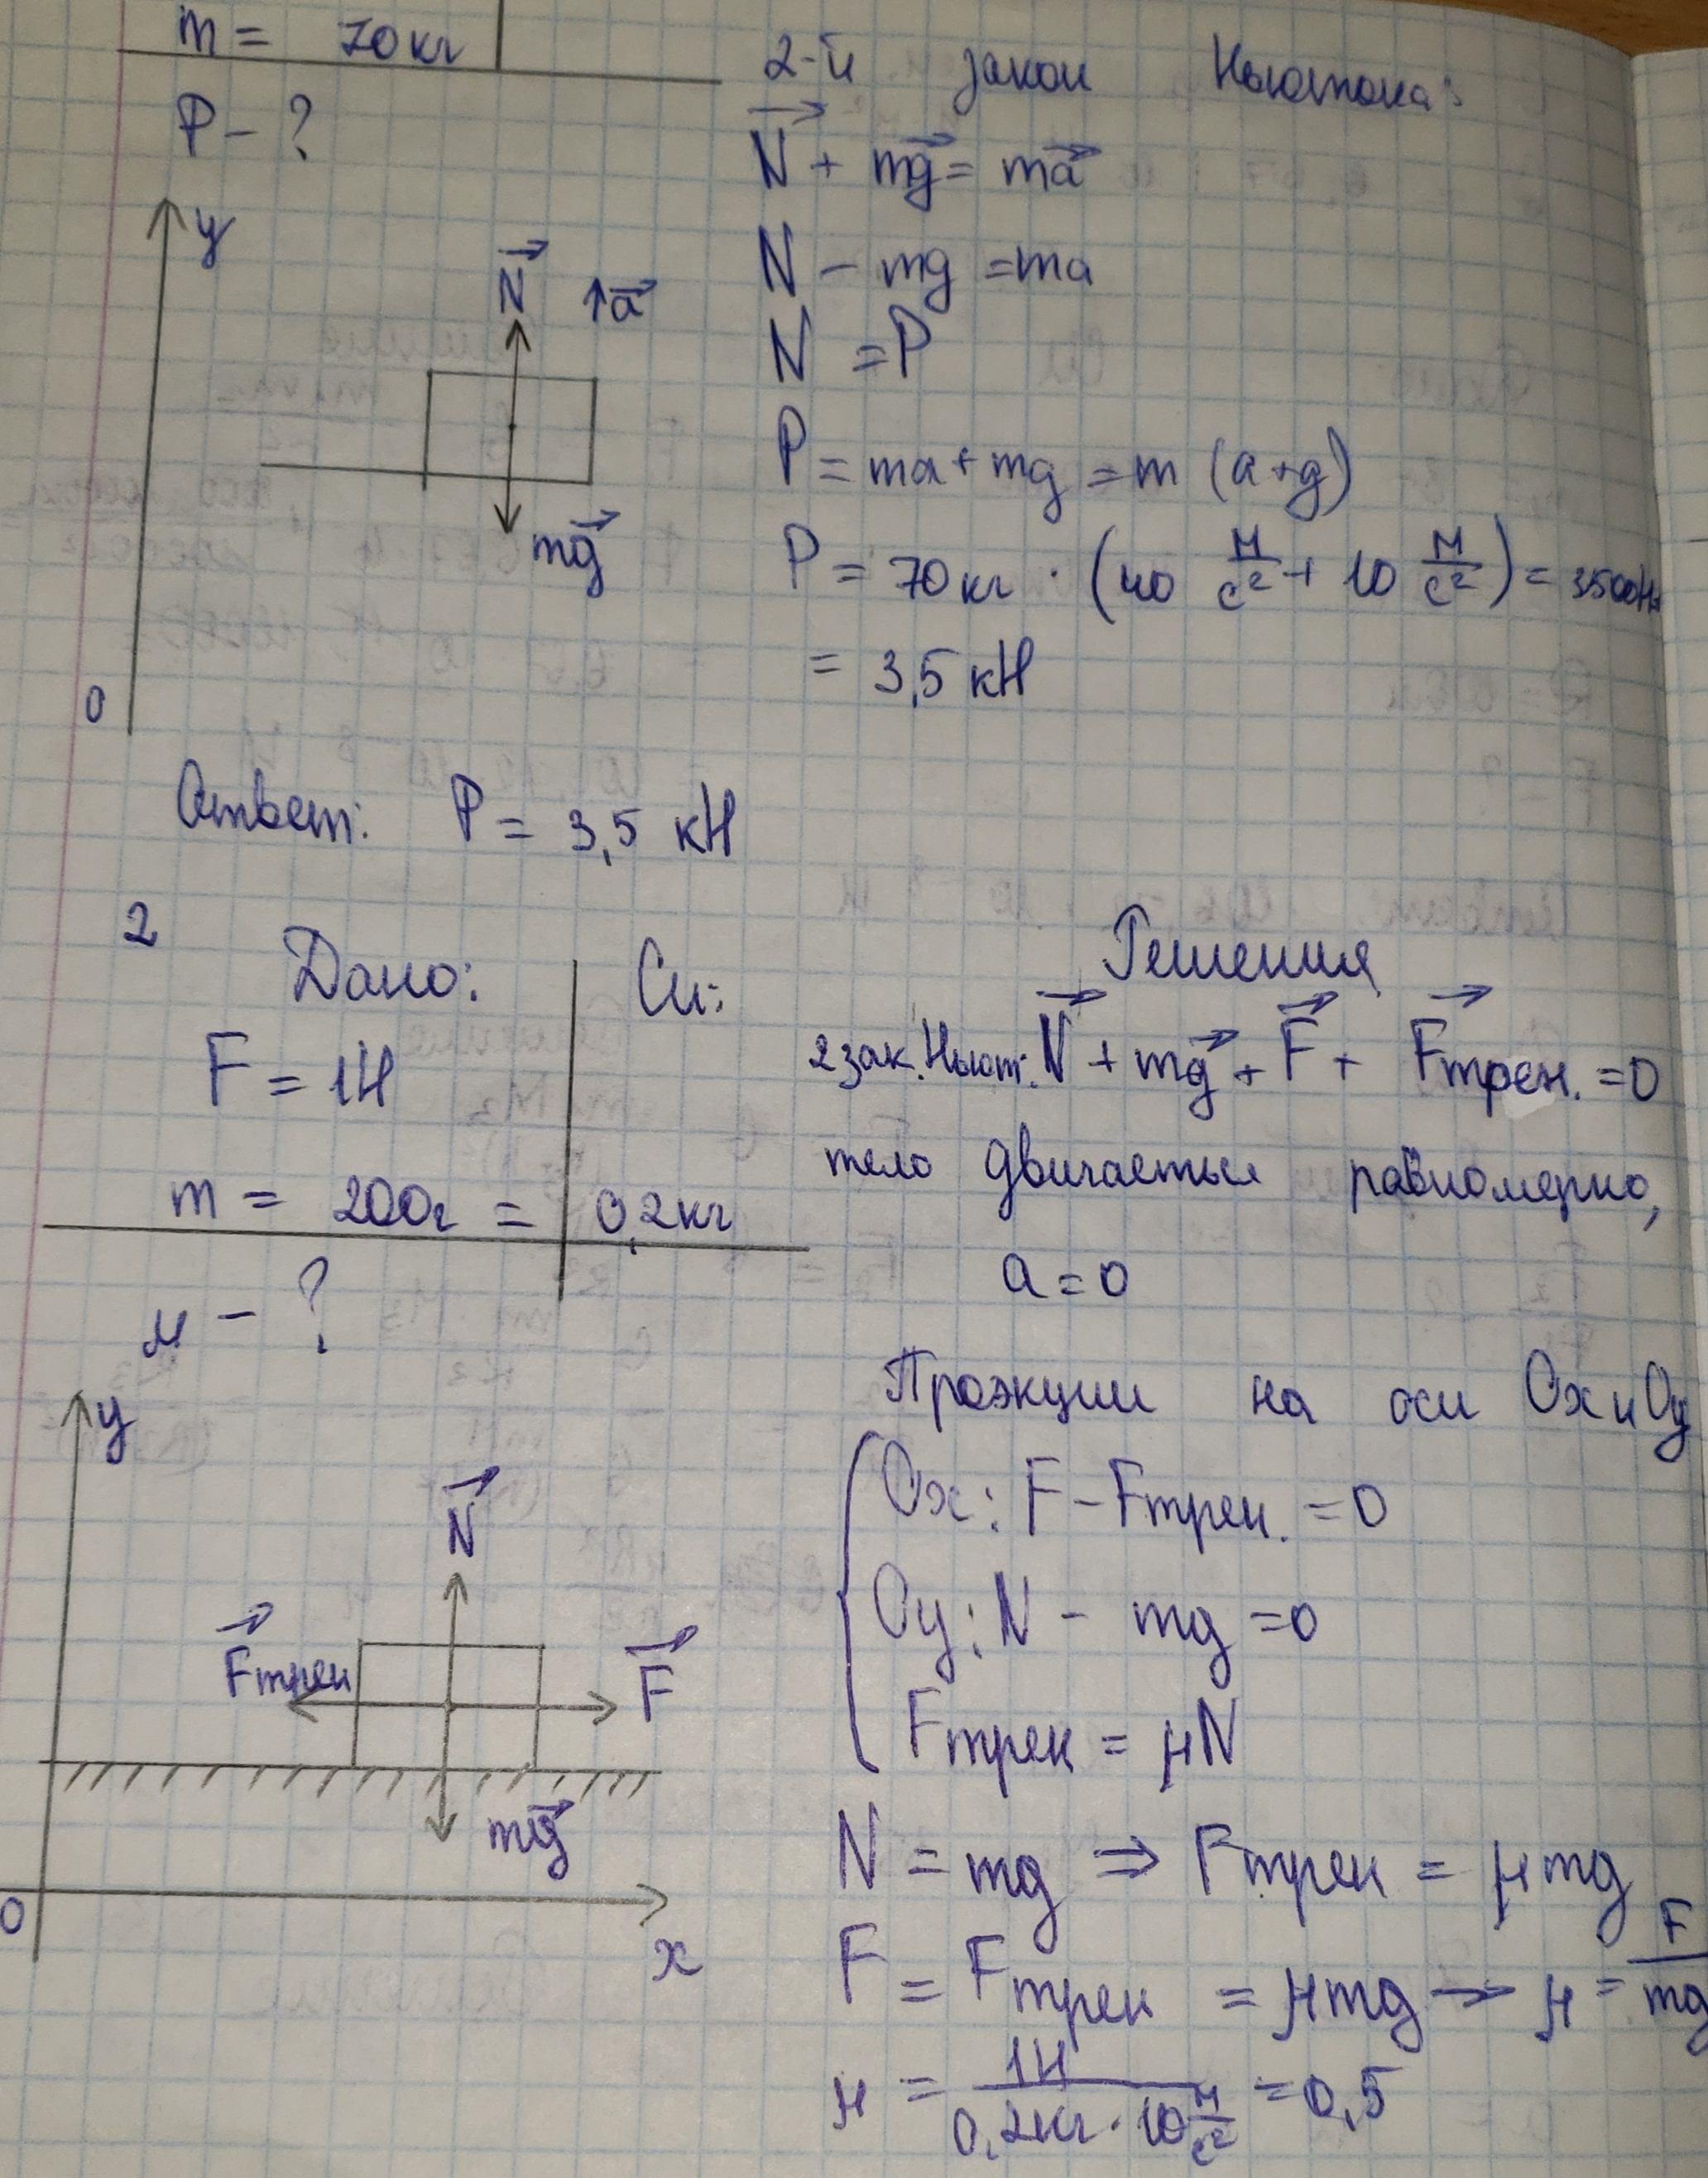 m = 70кг
P - ?
2-й закон Ньютона:
N⃗ + mg⃗ = ma⃗
N - mg = ma
N = P
P = ma + mg = m (a+g)
P = 70кг · (40 м/с² + 10 м/с²) = 3500Н=
= 3,5 кН
y
N⃗ ↑a⃗
mg⃗
0
Ответ: P = 3,5 кН
2
Дано:
Си:
F = 1Н
m = 200г = 0,2кг
μ - ?
Решения
2 зак. Ньют: N⃗ + mg⃗ + F⃗ + F⃗трен. = 0
тело двигаеться равномерно,
a = 0
Проэкции на оси Ох и Оу
Ох: F - Fтрен. = 0
Оу: N - mg = 0
Fтрен = μN
N = mg ⇒ Fтрен = μmg
F = Fтрен = μmg → μ = F/mg
μ = 1Н/0,2кг · 10 м/с² = 0,5
y
N⃗
F⃗трен
F⃗
mg⃗
0
x